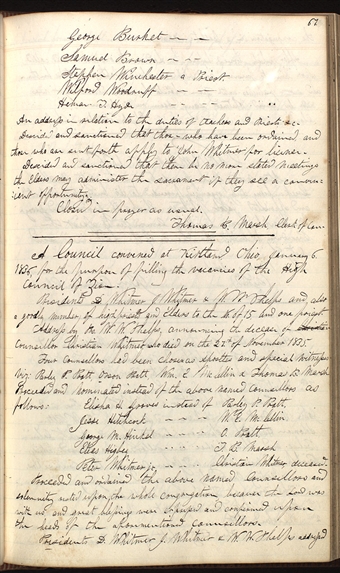 62
George Burket — —
Samuel Brown — —
Stephen Winchester a Priest
Wilford Woodruff — —
Heman T. Hyde — — "
An address in relation to the duties of teachers and Priests &c.
Decided and sanctioned that those who have been ordained and
those who are sent forth apply to John Whitmer for license.
Decided and sanctioned that there be no more stated meetings
the Elders may administer the sacrament if they see a conven-
ient opportunity.
Closed in prayer as usual.
Thomas B. Marsh Clerk of
A Council convened at Kirtland Ohio, January 6.
1836, for the purpose of filling the vacancies of the High
Council of Zion.
Presidents D. Whitmer J. Whitmer & W. W. Phelps and also
a goodly number of high priests and Elders to the No of 15 and one priest
Address by Pr. W. W. Phelps, announcing the decease of
Councillor Christian Whitmer who died on the 27th of November 1835.
Four Counsellors had been chosen as apostles and special witnesses
viz: Parley P. Pratt Orson Pratt Wm. E. McLellin & Thomas B. Marsh
Proceeded and nominated instead of the above named Counsellors as
follows: Elisha H. Groves instead of Parley P. Pratt
Jesse Hitchcock — — — W. E. McLellin.
George M. Hinkle — — — O. Pratt
Elias Higbee — — — T. B. Marsh
Peter Whitmer jr. — — — Christian Whitmer deceased
Proceeded and ordained the above named Counsellors and
solemnity rested upon the whole congregation because the Lord was
with us and great blessings were and confirmed upon
the heads of the aforementioned Councillors.
Presidents D. Whitmer J. Whitmer & W. W. Phelps